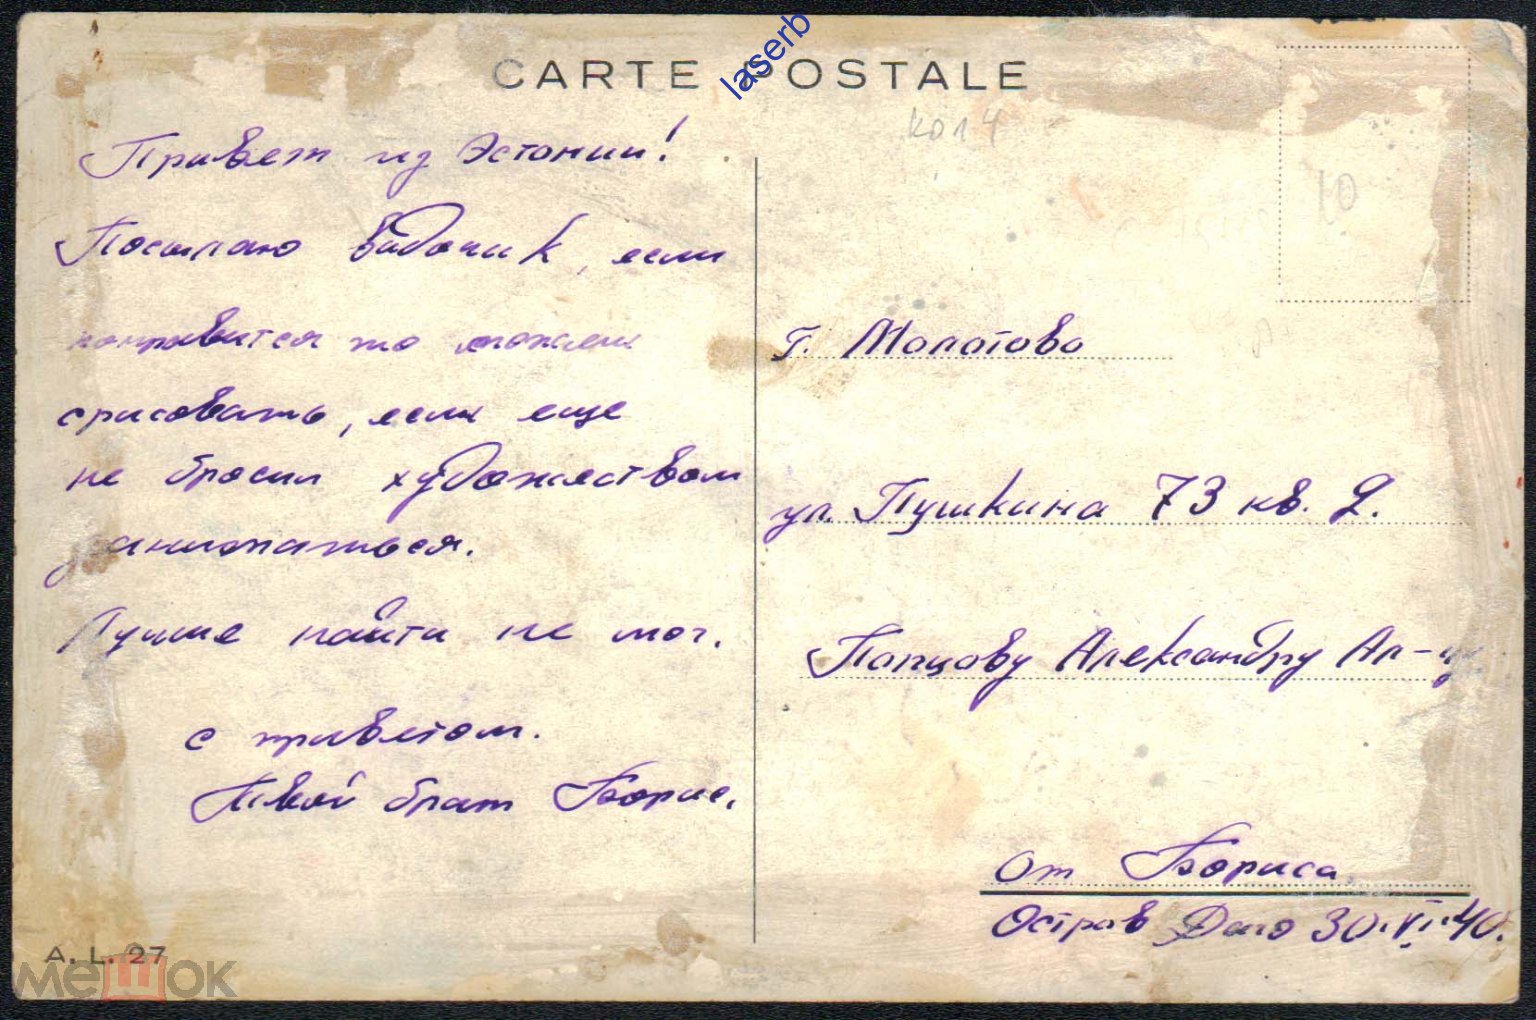 CARTE POSTALE
laserb
кол 4
10
Привет из Эстонии!
Посылаю видочик, если
понравится то можешь
срисовать, если еще
не бросил художеством
заниматься.
Лучше найти не мог.
с приветом.
Твой брат Борис.
г. Молотово
ул. Пушкина 73 кв. 2.
Попцову Александру Ал-чу
От Бориса
Остров Даго 30.VI.40.
A. L. 27
мешок